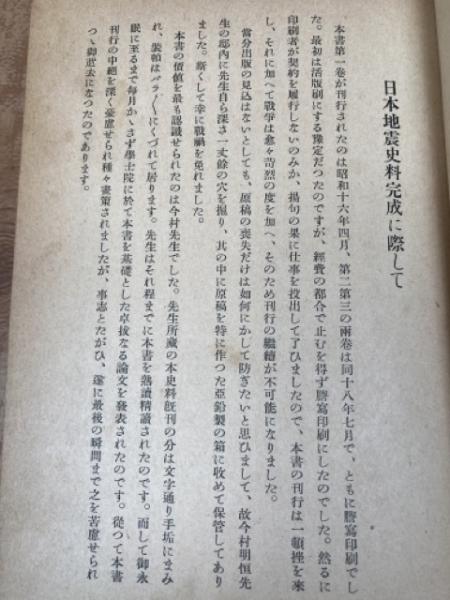 日本地震史料完成に際して
本書第一卷が刊行されたのは昭和十六年四月、第二第三の兩卷は同十八年七月で、ともに謄寫印刷でし
た。最初は活版刷にする豫定だつたのですが、經費の都合で止むを得ず謄寫印刷にしたのでした。然るに
印刷者が契約を履行しないのみか、揚句の果に仕事を投出して了ひましたので、本書の刊行は一頓挫を來
し、それに加へて戰爭は愈々苛烈の度を加へ、そのため刊行の繼續が不可能になりました。
當分出版の見込はないとしても、原稿の喪失だけは如何にかして防ぎたいと思ひまして、故今村明恒先
生の邸内に先生自ら深さ一丈餘の穴を掘り、其の中に原稿を特に作つた亞鉛製の箱に收めて保管してあり
ました。斯くして幸に戰禍を免れました。
本書の價値を最も認識せられたのは今村先生でした。先生所藏の本史料既刊の分は文字通り手垢にまみ
れ、裝幀はバラ〳〵にくづれて居ります。先生はそれ程までに本書を熟讀精讀されたのです。而して御永
眠に至るまで毎月かゝさず學士院に於て本書を基礎とした卓拔なる論文を發表されたのです。從つて本書
刊行の中絶を深く憂慮せられ種々畫策されましたが、事志とたがひ、遂に最後の瞬間まで之を苦慮せられ
つゝ御逝去になつたのであります。